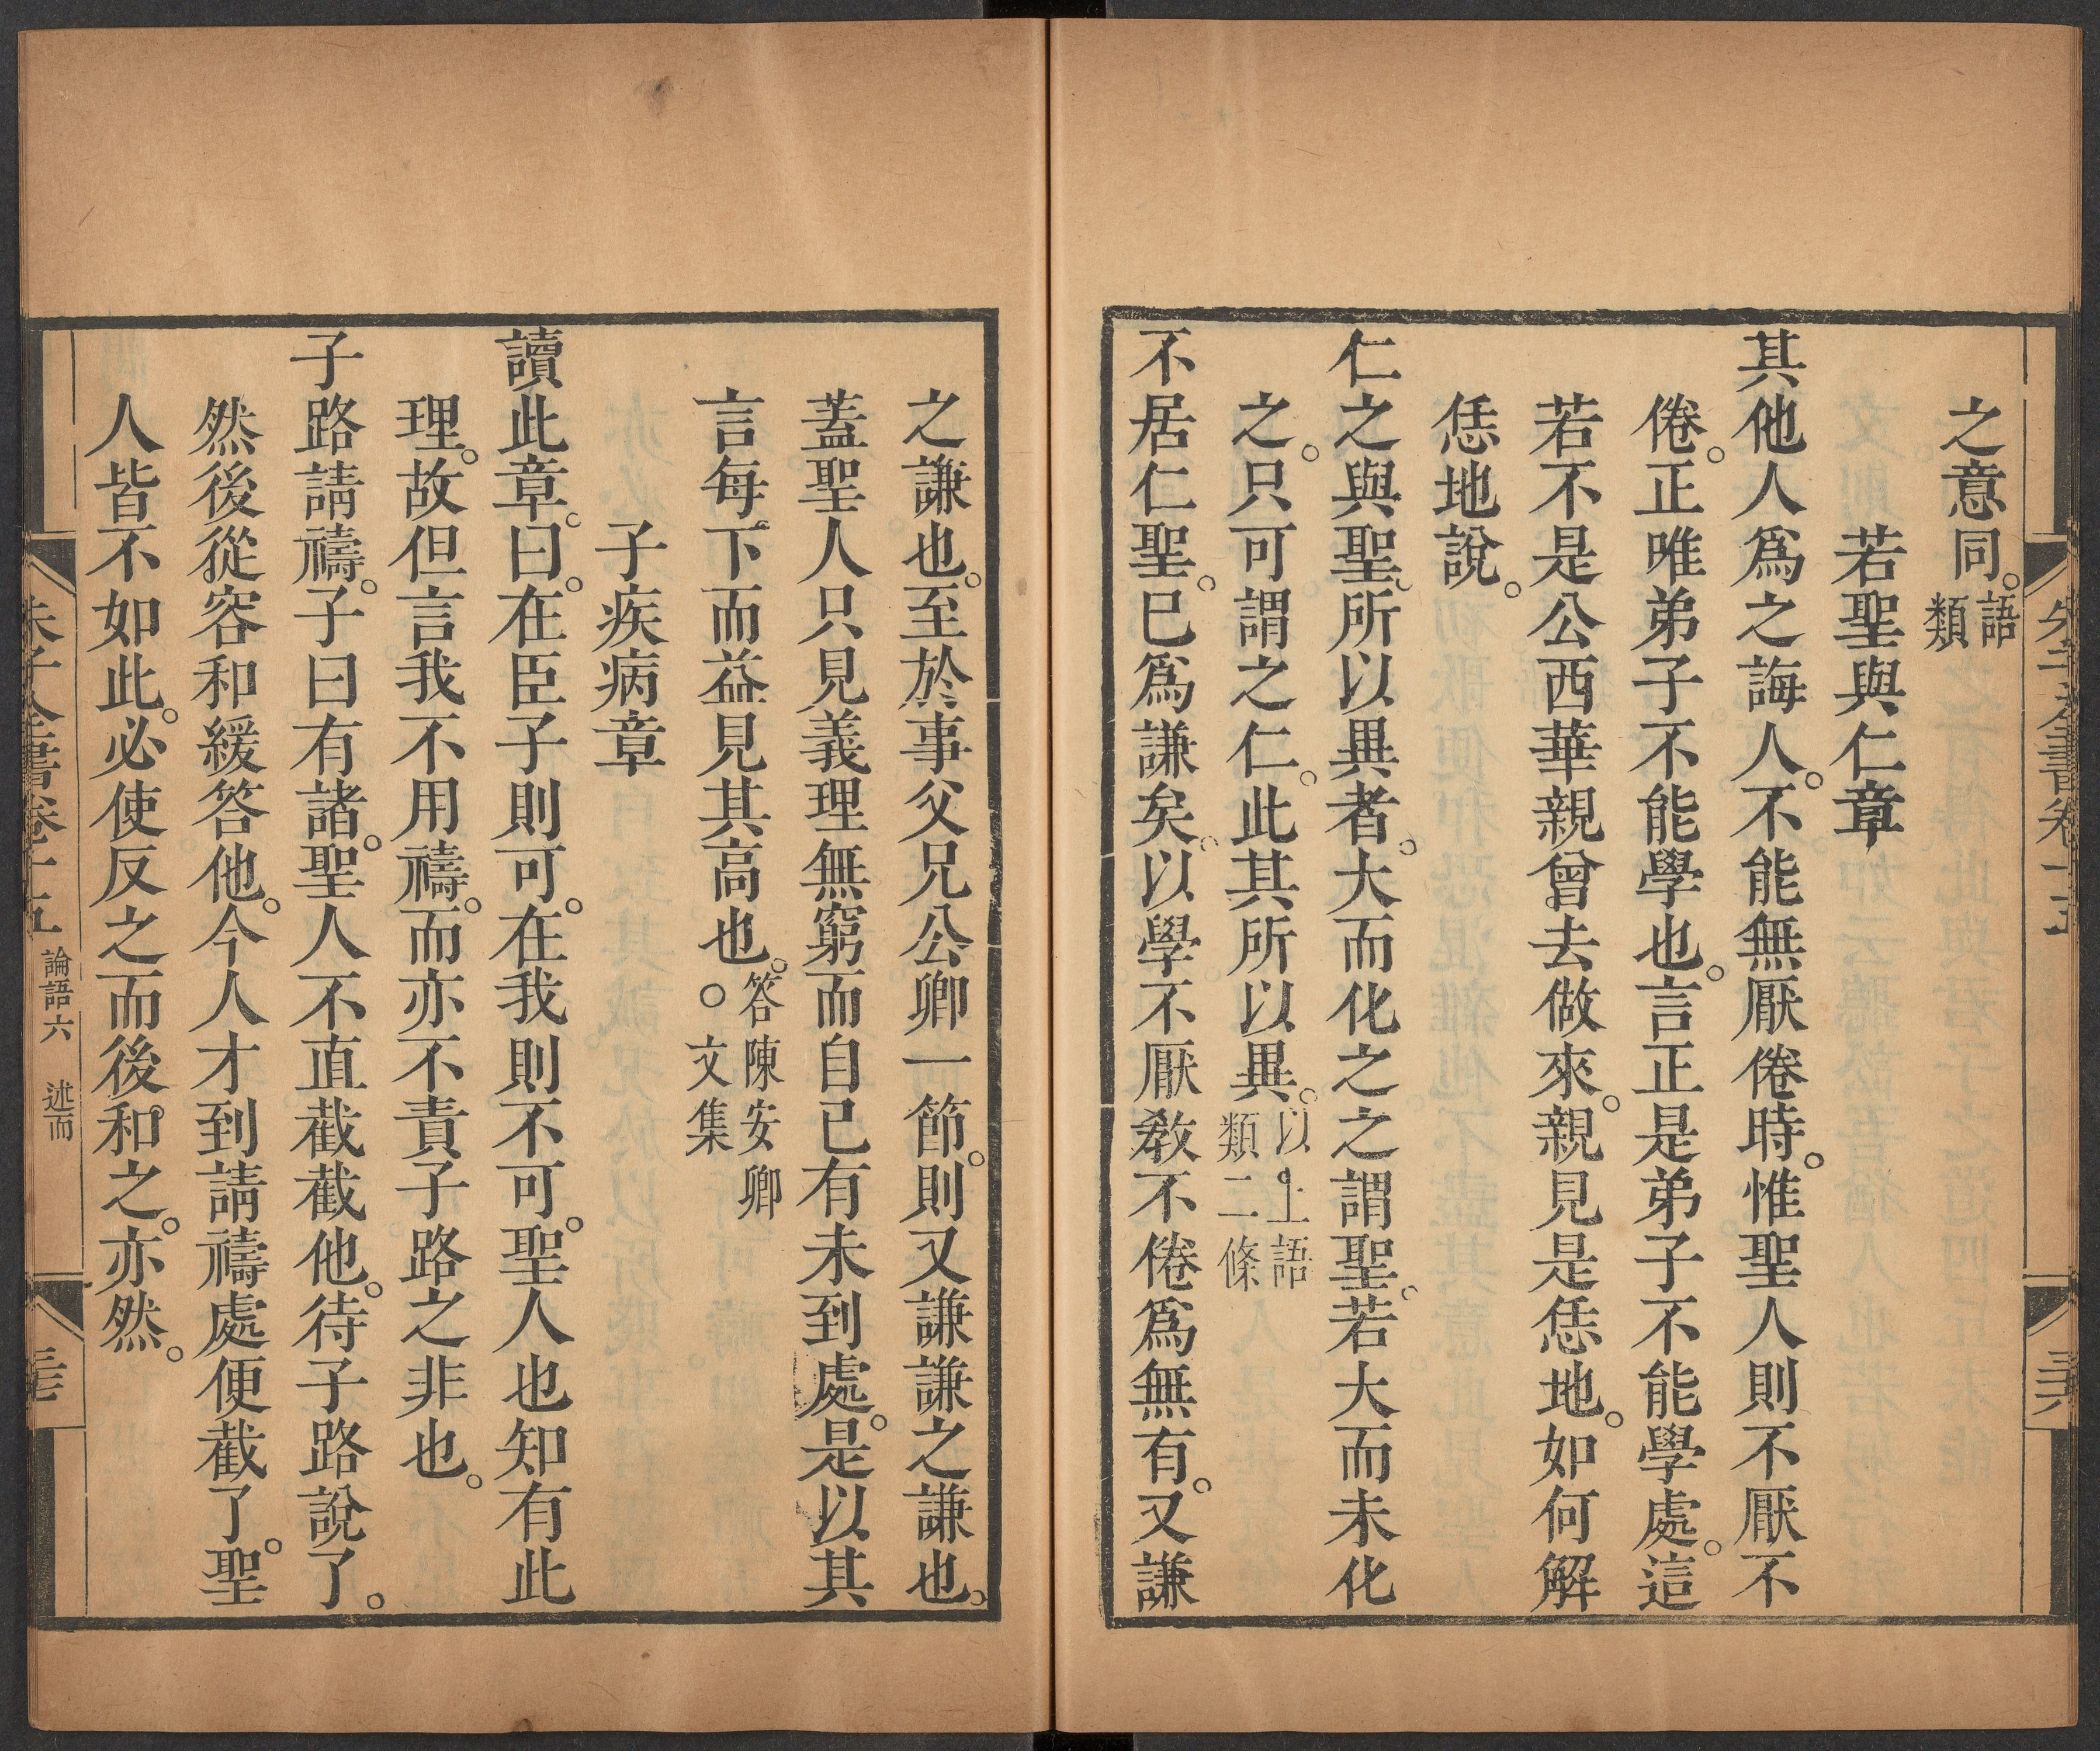 之意同。語類
若聖與仁章
其他人爲之誨人。不能無厭倦時。惟聖人則不厭不
倦。正唯弟子不能學也。言正是弟子不能學處。這
若不是公西華親曾去做來。親見是恁地。如何解
恁地說。
仁之與聖。所以異者。大而化之之謂聖。若大而未化
之。只可謂之仁。此其所以異。以上語類二條
不居仁聖。已爲謙矣。以學不厭教不倦爲無有。又謙
之謙也。至於事父兄公卿一節。則又謙謙之謙也。
蓋聖人只見義理無窮。而自已有未到處。是以其
言每下而益見其高也。答陳安卿○文集
子疾病章
讀此章。曰。在臣子則可。在我則不可。聖人也知有此
理。故但言我不用禱。而亦不責子路之非也。
子路請禱。子曰有諸。聖人不直截截他。待子路說了。
然後從容和緩答他。今人才到請禱處便截了。聖
人皆不如此。必使反之而後和之。亦然。
朱子全書卷十五 論語六 述而